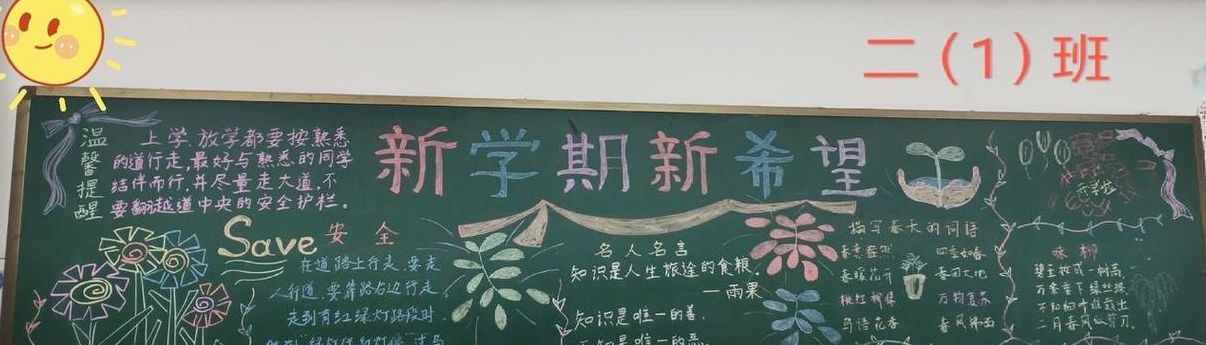 二(1)班
温馨提醒
上学、放学都要按熟悉
的道行走,最好与熟悉的同学
结伴而行,并尽量走大道,不
要翻越道中央的安全护栏。
新学期新希望
Save 安全
在道路上行走,要走
人行道,要靠路右边行走。
走到有红绿灯路段时,
名人名言
知识是人生旅途的食粮。
—雨果
知识是唯一的善,
描写春天的词语
春意盎然 四季如春
春暖花开 春回大地
桃红柳绿 万物复苏
鸟语花香 春风拂面
咏柳
碧玉妆成一树高,
万条垂下绿丝绦。
不知细叶谁裁出,
二月春风似剪刀。